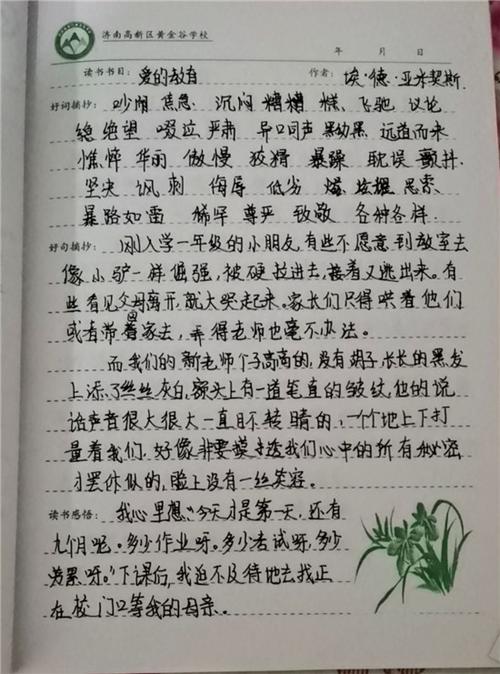 济南高新区黄金谷学校
年 月 日
读书书目: 爱的教育 作者: 埃·德·亚米契斯.
好词摘抄: 吵闹 焦急 沉闷 糟糟 糕 飞驰 议论
绝 绝望 啜泣 严肃 异口同声 黑幼黑 远道而来
憔悴 华丽 傲慢 狡猾 暴躁 耽误 颤抖.
坚决 讽刺 侮辱 低劣 思索.
暴路如雷 稀罕 尊严 致敬 各种各样.
好句摘抄: 刚入学一年级的小朋友,有些不愿意到教室去
像小驴一样倔强,被硬拉进去,接着又逃出来。有
些看见父母离开,就大哭起来。家长们只得哄着他们
或者带着家去,弄得老师也毫不办法。
回
而我们的新老师个子高高的,没有胡子,长长的黑发
上添了丝丝灰白,额头上有一道笔直的皱纹,他的说
话声音很大很大一直目不转睛的,一个个地上下打
量着我们.好像非要摸透我们心中的所有秘密
才罢休似的,脸上没有一丝笑容。
读书感悟: 我心里想:"今天才是第一天,还有
九个月呢。多少作业呀。多少考试呀,多少
劳累呀。"下课后,我迫不及待地去找正
在校门口等我的母亲。